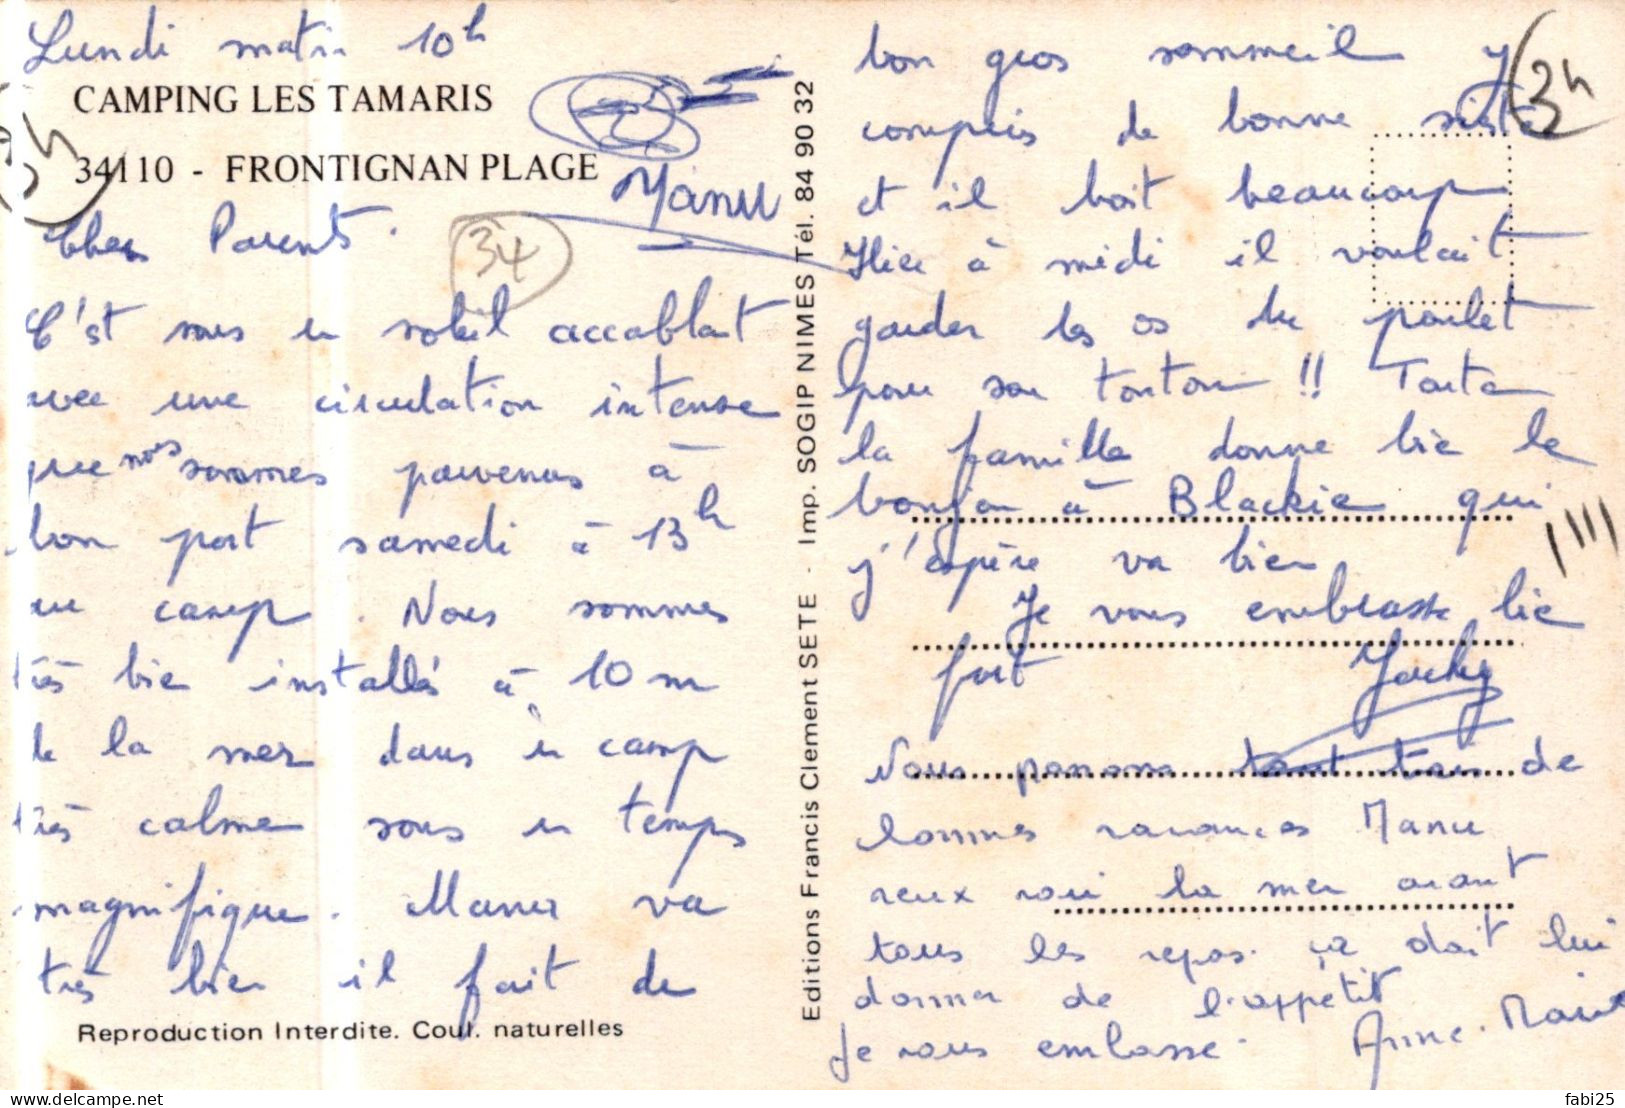 Lundi matin 10h
CAMPING LES TAMARIS
34110 - FRONTIGNAN PLAGE
Manu
Chers Parents.
34
C'est sous un soleil accablant
avec une circulation intense
que nous sommes parvenus à
bon port samedi à 13h
au camp. Nous sommes
très bien installés à 10 m
de la mer dans un camp
très calme sous un temps
magnifique. Manu va
très bien il fait de
Reproduction Interdite. Coul. naturelles
Editions Francis Clement SETE - Imp. SOGIP NIMES Tél. 84 90 32
bon gros sommeil y
34
compris de bonne sieste
et il boit beaucoup
Hier à midi il voulait
garder les os du poulet
pour son tonton !! Toute
la famille donne bien le
bonjour à Blackie qui
j'espère va bien
Je vous embrasse bien
fort Jacky
Nous passons tous trois de
bonnes vacances Manu
veux voir la mer avant
tous les repas. ça doit lui
donner de l'appétit
Je vous embrasse. Anne-Marie
fabi25